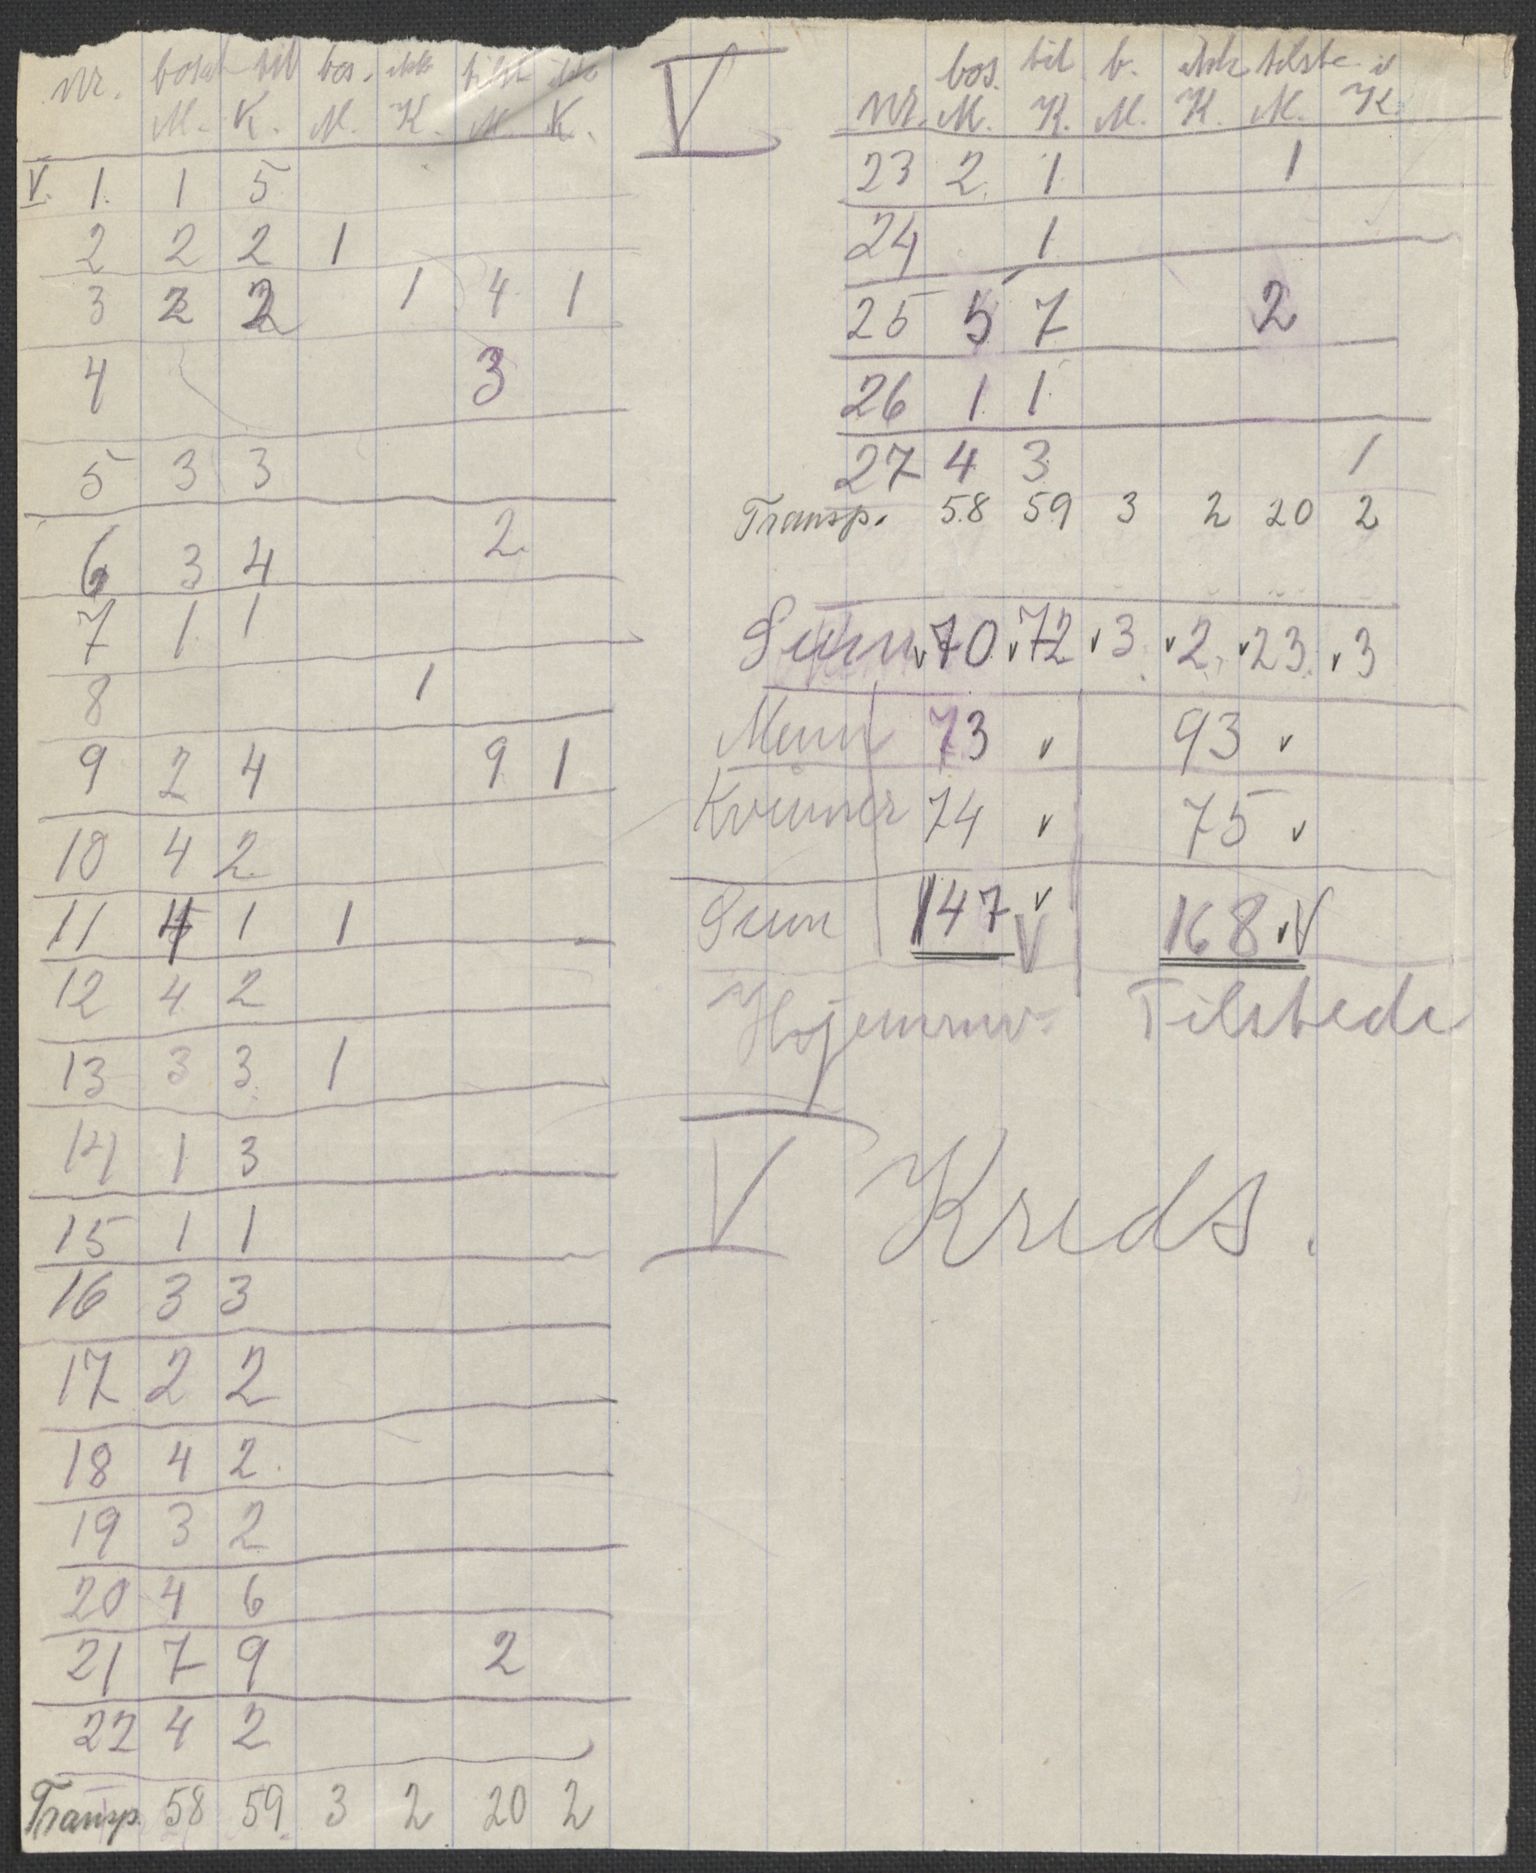 Nr. bosat til bos. ikk tilst ikke
M. K. M. K. M. K.
V. 1. 1 5
2 2 2 1
3 2 2 1 4 1
4 3
5 3 3
6 3 4 2
7 1 1
8 1
9 2 4 9 1
10 4 2
11 4 1 1
12 4 2
13 3 3 1
14 1 3
15 1 1
16 3 3
17 2 2
18 4 2
19 3 2
20 4 6
21 7 9 2
22 4 2
Transp. 58 59 3 2 20 2
V
bos. til b. ikk tilste i
Nr. M. K. M. K. M. K.
23 2 1 1
24 1
25 5 7 2
26 1 1
27 4 3 1
Transp. 58 59 3 2 20 2
Sum 70 72 3 2 23 3
Menn 73 93
Kvinner 74 75
Sum 147 168
Hjemme Tilstede
V Kreds.